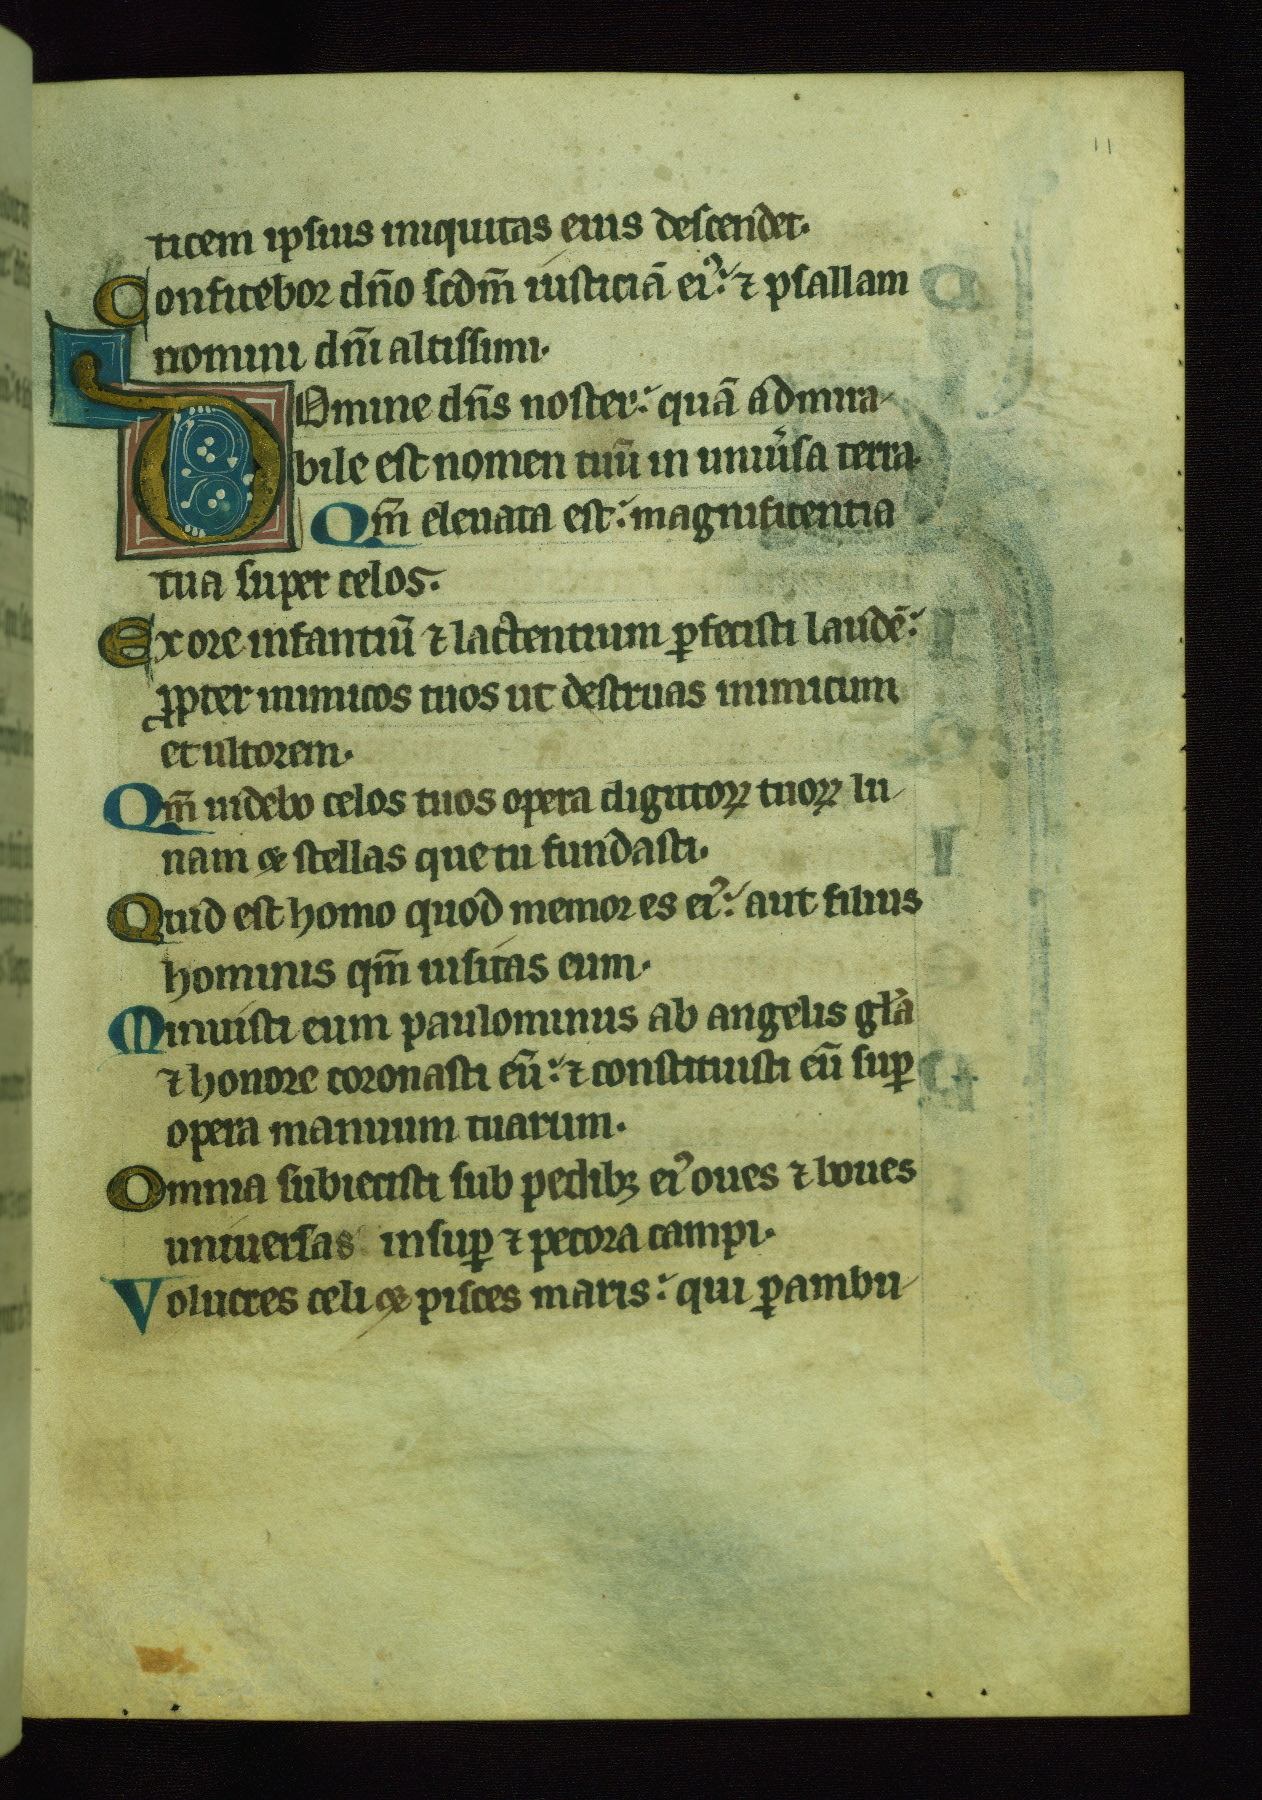 11
ticem ipsius iniquitas eius descendet.
Confitebor dño scdm̄ iusticiā eiꝰ: ⁊ psallam
nomini dñi altissimi.
Domine dñs noster: quā admira
bile est nomen tuū in uniũsa terra.
Qm̄ eleuata est: magnificentia
tua super celos.
Ex ore infantiū ⁊ lactentium ꝑfecisti laudē:
ꝓpter inimicos tuos ut destruas inimicum
et ultorem.
Qm̄ uidebo celos tuos opera digitoꝝ tuoꝝ lu
nam & stellas que tu fundasti.
Quid est homo quod memor es eiꝰ: aut filius
hominis qm̄ uisitas eum.
Minuisti eum paulominus ab angelis gła
⁊ honore coronasti eū: ⁊ constituisti eū suꝑ
opera manuum tuarum.
Omnia subiecisti sub pedibꝫ eiꝰ oues ⁊ boues
uniuersas insuꝑ ⁊ pecora campi.
Volucres celi & pisces maris: qui ꝑambu